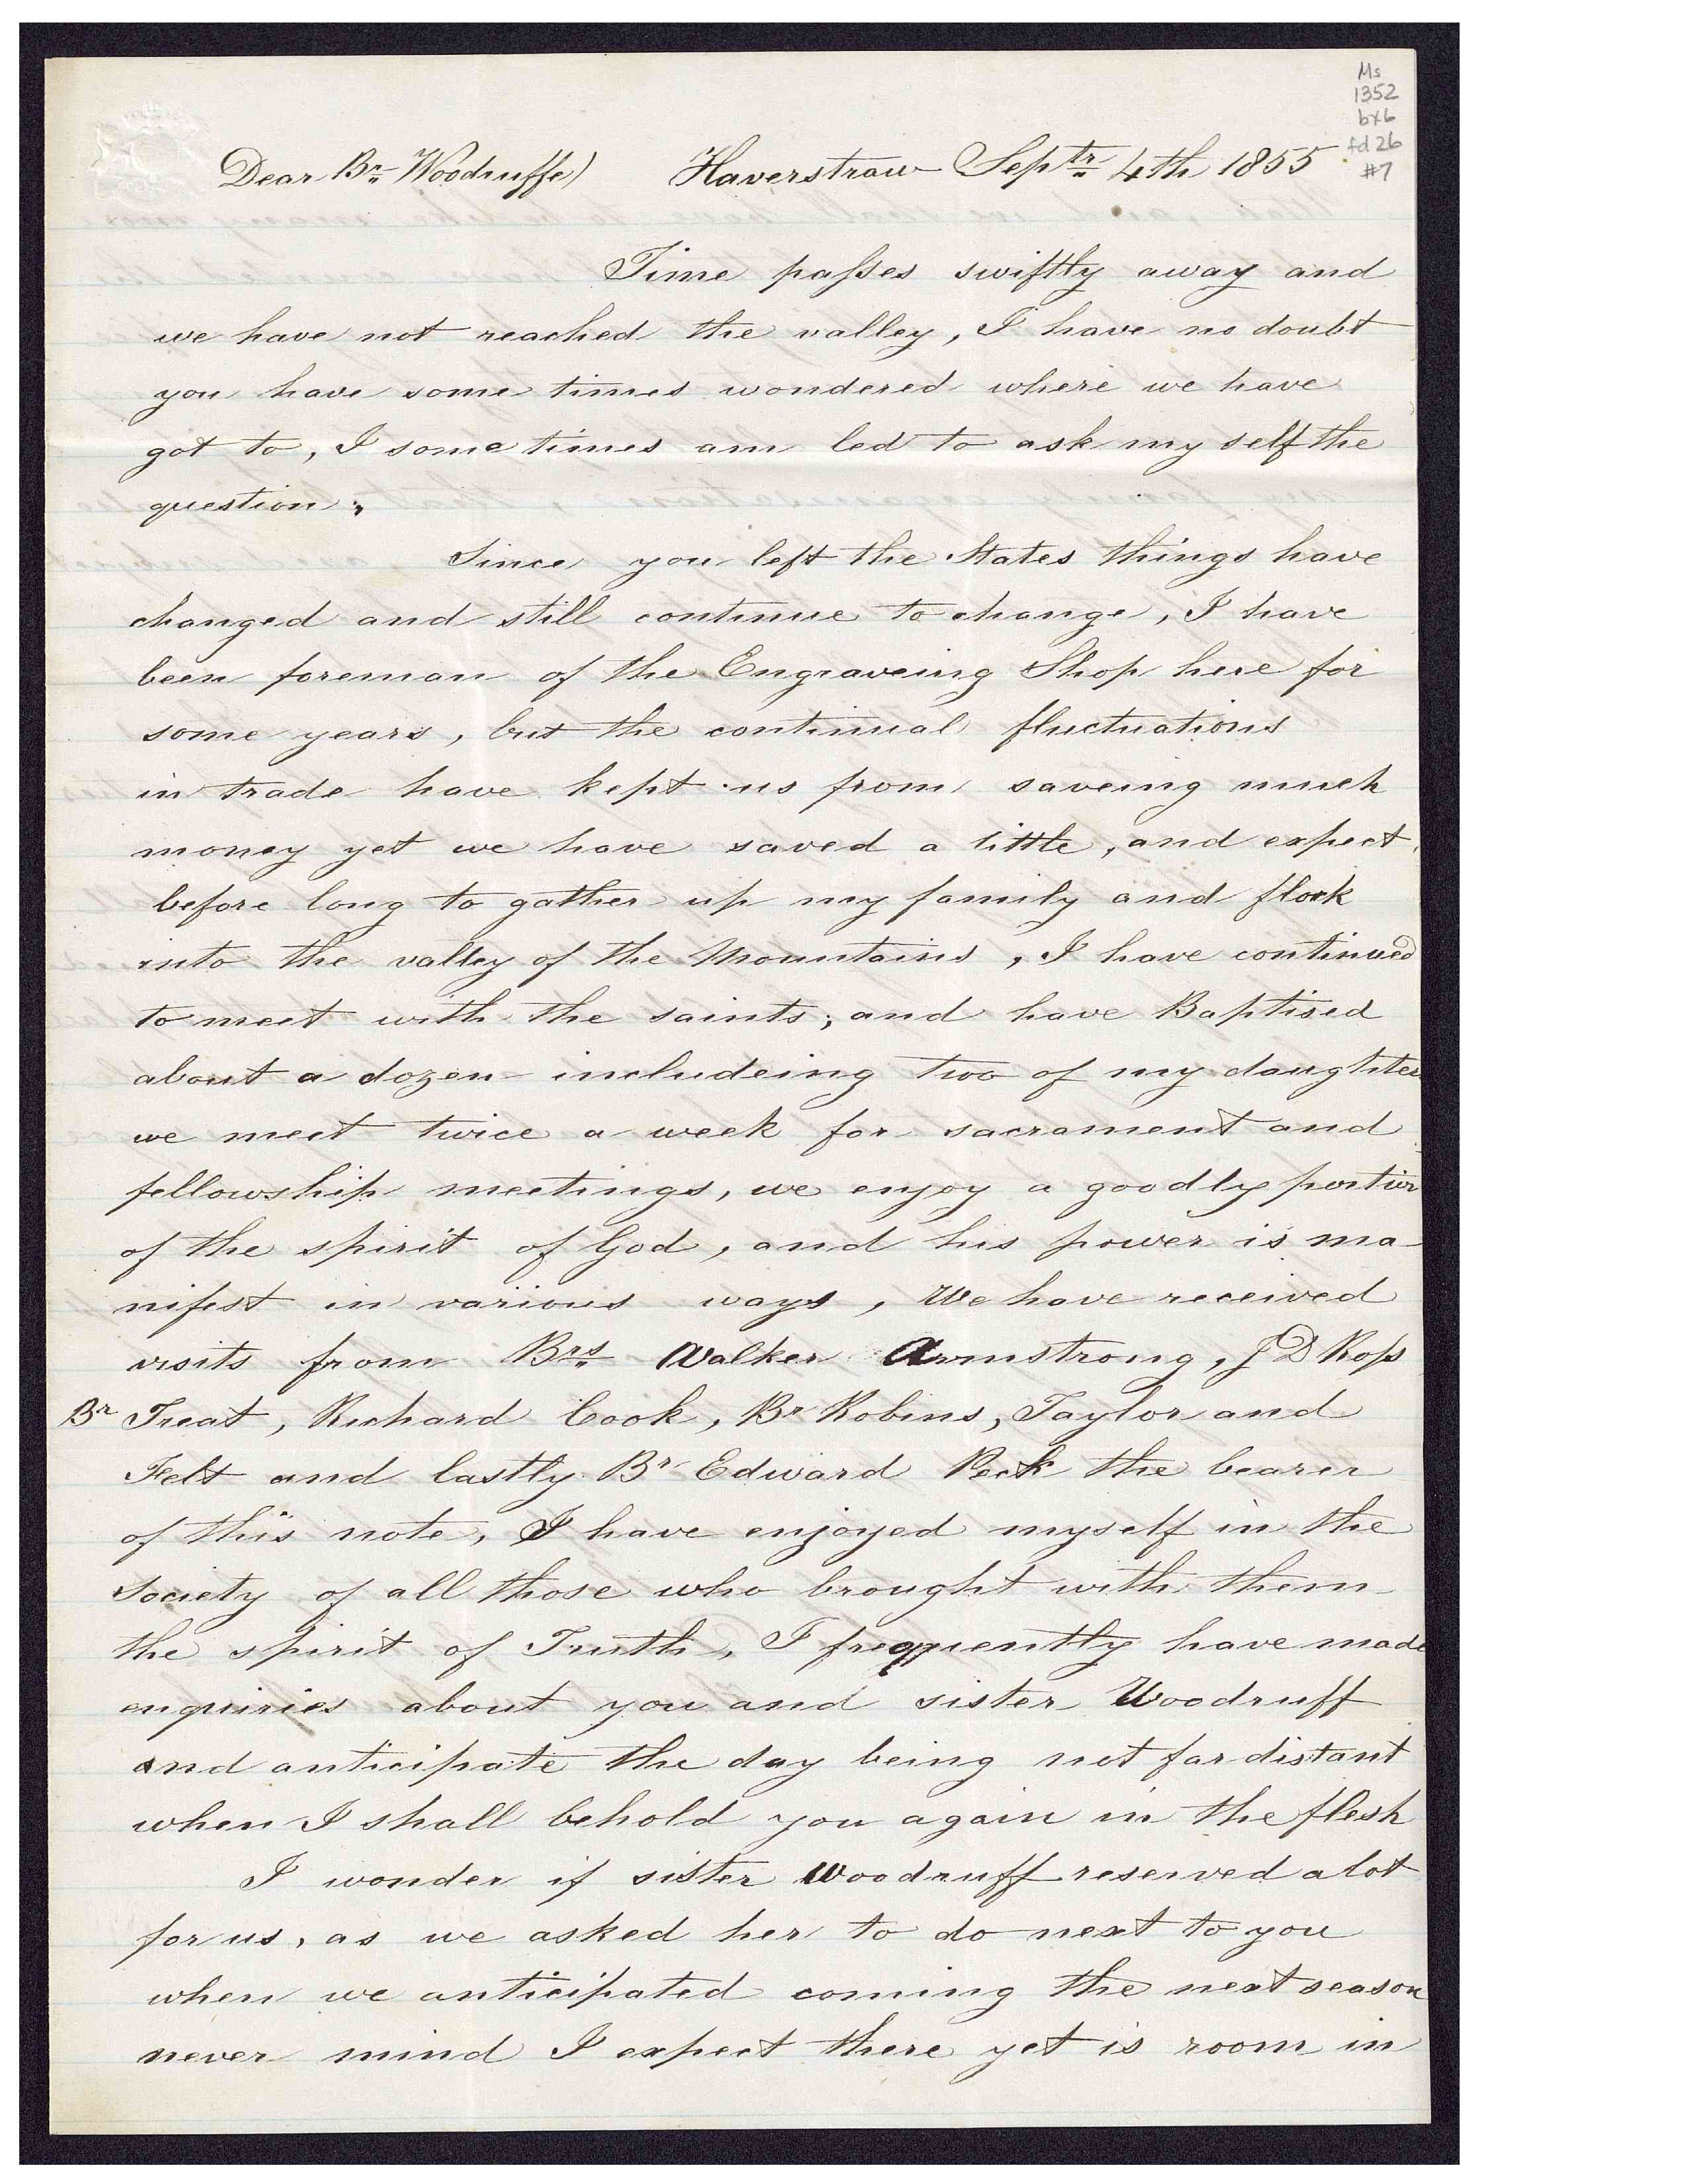 Ms
1352
bx6
fd 26
#7
Dear Br. Woodruffe Haverstraw Septr 4th 1855
Time passes swiftly away and
we have not reached the valley, I have no doubt
you have some times wondered where we have
got to, I some times am led to ask my self the
question.
Since you left the States things have
changed and still continue to change, I have
been foreman of the Engraveing Shop here for
some years, but the continual fluctuations
in trade have kept us from saveing much
money yet we have saved a little, and expect
before long to gather up my family and flock
into the valley of the Mountains, I have continued
to meet with the saints; and have Baptised
about a dozen includeing two of my daughters
we meet twice a week for sacrament and
fellowship meetings, we enjoy a goodly portion
of the spirit of God, and his power is ma-
nifest in variious ways, We have received
visits from Brs. Walker Armstrong, J D Ross
Br Treat, Richard Cook, Br Robins, Taylor and
Felt and lastly Br Edward Peck the bearer
of this note, I have enjoyed myself in the
Society of all those who brought with them
the spirit of Truth, I frequently have made
enquiries about you and sister Woodruff
and anticipate the day being not far distant
when I shall behold you again in the flesh
I wonder if sister Woodruff reserved a lot
for us, as we asked her to do next to you
when we anticipated coming the next season
never mind I expect there yet is room in